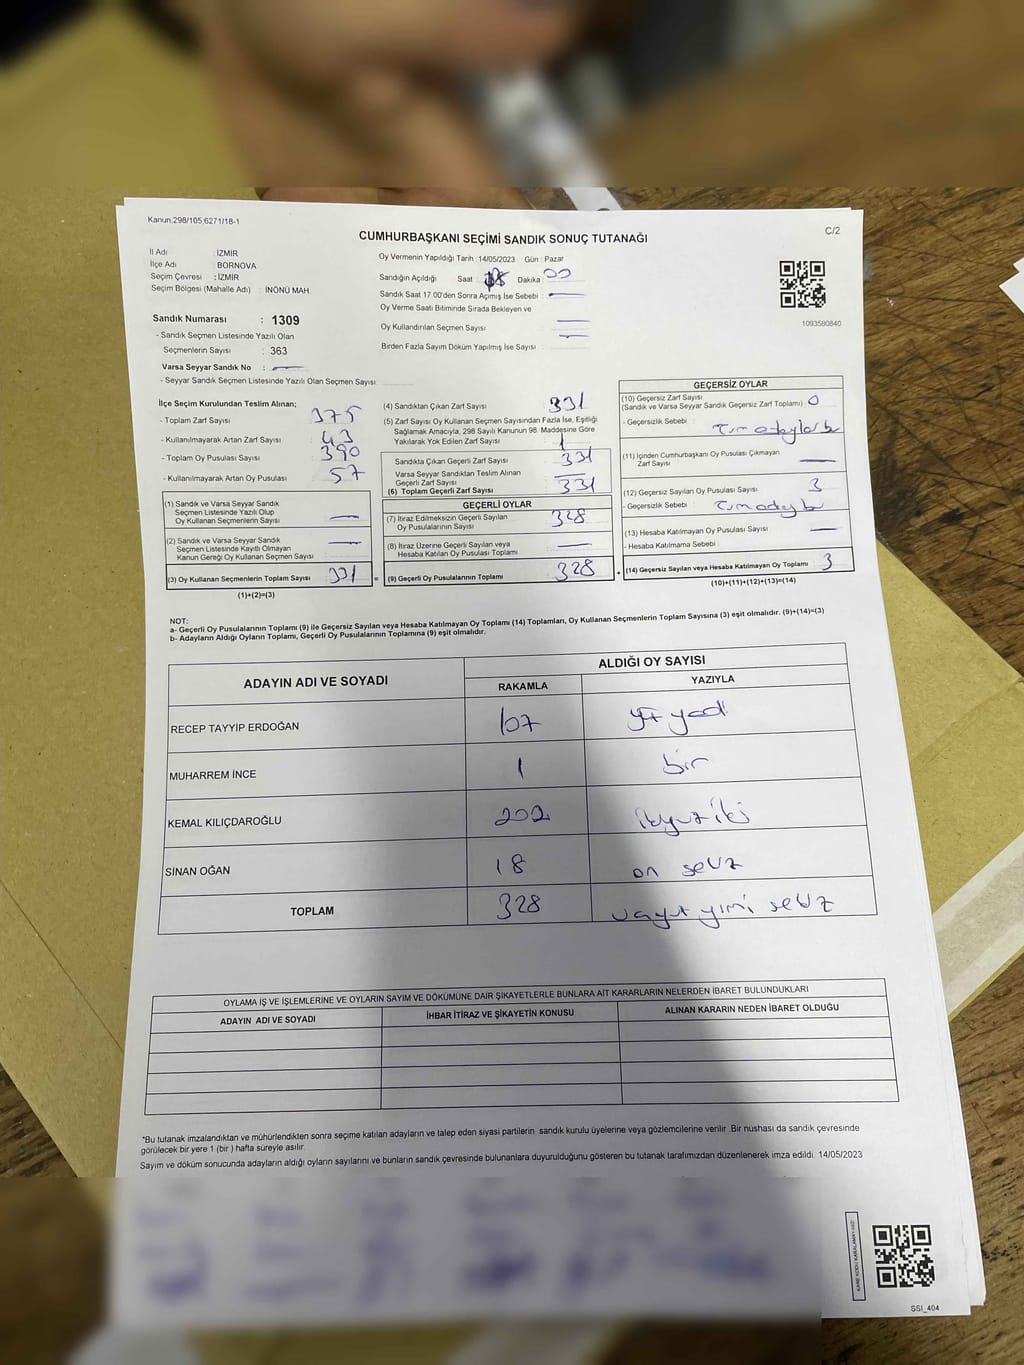 Kanun.298/105,6271/18-1
C/2
CUMHURBAŞKANI SEÇİMİ SANDIK SONUÇ TUTANAĞI
İl Adı : İZMİR
İlçe Adı : BORNOVA
Seçim Çevresi : İZMİR
Seçim Bölgesi (Mahalle Adı) : İNÖNÜ MAH.
Oy Vermenin Yapıldığı Tarih :14/05/2023 Gün : Pazar
Sandığın Açıldığı Saat 18 Dakika 00
Sandık Saat 17:00'den Sonra Açımış İse Sebebi :
Oy Verme Saati Bitiminde Sırada Bekleyen ve
Oy Kullandırılan Seçmen Sayısı
Birden Fazla Sayım Döküm Yapılmış İse Sayısı :
1093580840
Sandık Numarası : 1309
- Sandık Seçmen Listesinde Yazılı Olan
Seçmenlerin Sayısı : 363
Varsa Seyyar Sandık No :
- Seyyar Sandık Seçmen Listesinde Yazılı Olan Seçmen Sayısı:
İlçe Seçim Kurulundan Teslim Alınan;
- Toplam Zarf Sayısı : 375
- Kullanılmayarak Artan Zarf Sayısı : 43
- Toplam Oy Pusulası Sayısı : 390
- Kullanılmayarak Artan Oy Pusulası : 57
(1) Sandık ve Varsa Seyyar Sandık
Seçmen Listesinde Yazılı Olup
Oy Kullanan Seçmenlerin Sayısı :
(2) Sandık ve Varsa Seyyar Sandık
Seçmen Listesinde Kayıtlı Olmayan
Kanun Gereği Oy Kullanan Seçmen Sayısı :
(3) Oy Kullanan Seçmenlerin Toplam Sayısı 331 =
(1)+(2)=(3)
(4) Sandıktan Çıkan Zarf Sayısı : 331
(5) Zarf Sayısı Oy Kullanan Seçmen Sayısından Fazla İse, Eşitliği
Sağlamak Amacıyla; 298 Sayılı Kanunun 98. Maddesine Göre
Yakılarak Yok Edilen Zarf Sayısı :
Sandıkta Çıkan Geçerli Zarf Sayısı 331
Varsa Seyyar Sandıktan Teslim Alınan
Geçerli Zarf Sayısı
(6) Toplam Geçerli Zarf Sayısı : 331
GEÇERLİ OYLAR
(7) İtiraz Edilmeksizin Geçerli Sayılan
Oy Pusulalarının Sayısı 328
(8) İtiraz Üzerine Geçerli Sayılan veya
Hesaba Katılan Oy Pusulası Toplamı
(9) Geçerli Oy Pusulalarının Toplamı : 328 +
GEÇERSİZ OYLAR
(10) Geçersiz Zarf Sayısı
(Sandık ve Varsa Seyyar Sandık Geçersiz Zarf Toplamı) : 0
- Geçersizlik Sebebi :
(11) İçinden Cumhurbaşkanı Oy Pusulası Çıkmayan
Zarf Sayısı
(12) Geçersiz Sayılan Oy Pusulası Sayısı : 3
- Geçersizlik Sebebi :
(13) Hesaba Katılmayan Oy Pusulası Sayısı :
- Hesaba Katılmama Sebebi :
(14) Geçersiz Sayılan veya Hesaba Katılmayan Oy Toplamı : 3
(10)+(11)+(12)+(13)=(14)
NOT:
a- Geçerli Oy Pusulalarının Toplamı (9) ile Geçersiz Sayılan veya Hesaba Katılmayan Oy Toplamı (14) Toplamları, Oy Kullanan Seçmenlerin Toplam Sayısına (3) eşit olmalıdır. (9)+(14)=(3)
b- Adayların Aldığı Oyların Toplamı, Geçerli Oy Pusulalarının Toplamına (9) eşit olmalıdır.
ADAYIN ADI VE SOYADI
ALDIĞI OY SAYISI
RAKAMLA YAZIYLA
RECEP TAYYİP ERDOĞAN 107 yüz yedi
MUHARREM İNCE 1 bir
KEMAL KILIÇDAROĞLU 202 ikiyüziki
SİNAN OĞAN 18 on sekiz
TOPLAM 328 üçyüz yirmi sekiz
OYLAMA İŞ VE İŞLEMLERİNE VE OYLARIN SAYIM VE DÖKÜMÜNE DAİR ŞİKAYETLERLE BUNLARA AİT KARARLARIN NELERDEN İBARET BULUNDUKLARI
ADAYIN ADI VE SOYADI İHBAR İTİRAZ VE ŞİKAYETİN KONUSU ALINAN KARARIN NEDEN İBARET OLDUĞU
*Bu tutanak imzalandıktan ve mühürlendikten sonra seçime katılan adayların ve talep eden siyasi partilerin sandık kurulu üyelerine veya gözlemcilerine verilir .Bir nüshası da sandık çevresinde
görülecek bir yere 1 (bir ) hafta süreyle asılır.
Sayım ve döküm sonucunda adayların aldığı oyların sayılarını ve bunların sandık çevresinde bulunanlara duyurulduğunu gösteren bu tutanak tarafımızdan düzenlenerek imza edildi. 14/05/2023
SSI_404